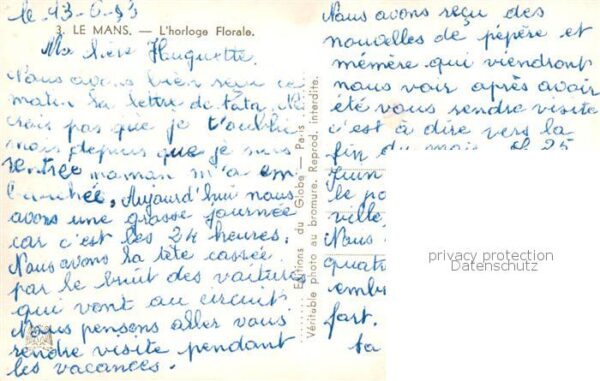 le 13-6-53
3. LE MANS. — L'horloge Florale.
Ma chère Huguette.
Nous avons bien reçu ce
matin la lettre de tata. Ne
crois pas que je t'oublie
mais depuis que je suis
rentrée maman m'a em
Aujourd'hui nous
avons une grasse journée
car c'est les 24 heures.
Nous avons la tête cassée
par le bruit des voitures
qui vont au circuit.
Nous pensons aller vous
rendre visite pendant
les vacances.
Editions du Globe — Paris
Véritable photo au bromure. Reprod. interdite.
Nous avons reçu des
nouvelles de pépère et
mémère qui viendront
nous voir après avoir
été vous rendre visite
c'est à dire vers la
fin du mois. le 25
Juin
le po
ville
Nous
quat
emb
fort.
ta
privacy protection
Datenschutz